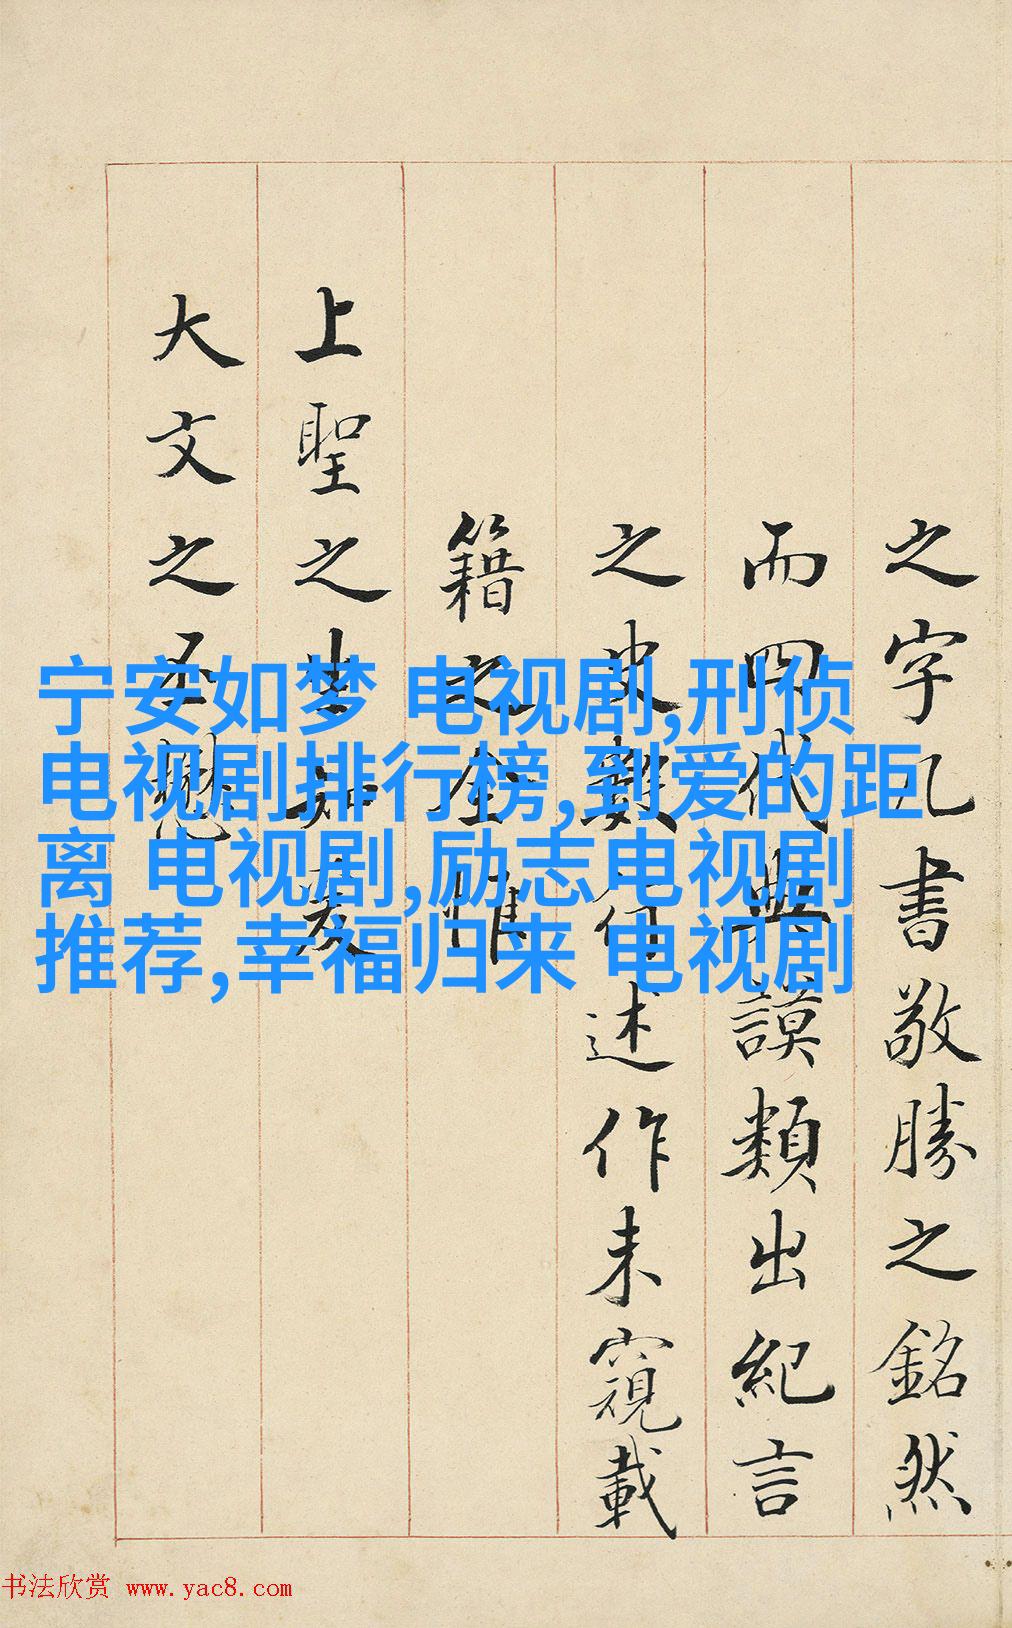 宁安如梦 电视剧,刑侦
电视剧排行榜,到爱的距
离 电视剧,励志电视剧
推荐,幸福归来 电视剧
之字几書敬勝之銘然
而四代典謨類出紀言
之史述作未窺載
籍之全惟
上聖之生知爰
大文之丕懋
书法欣赏 www.yac8.com